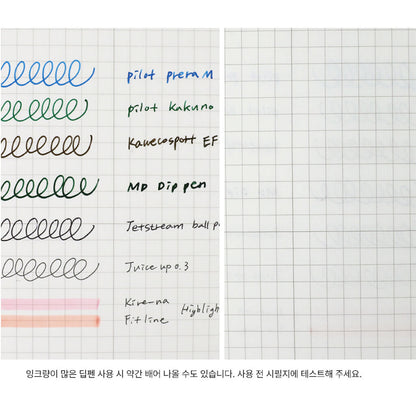 pilot prera M
pilot kakuno
Kawecosport EF
MD Dip pen
Jetstream ball p
Juice up 0.3
Kire-na
Fitline
Highligh
잉크량이 많은 딥펜 사용 시 약간 배어 나올 수도 있습니다. 사용 전 시필지에 테스트해 주세요.